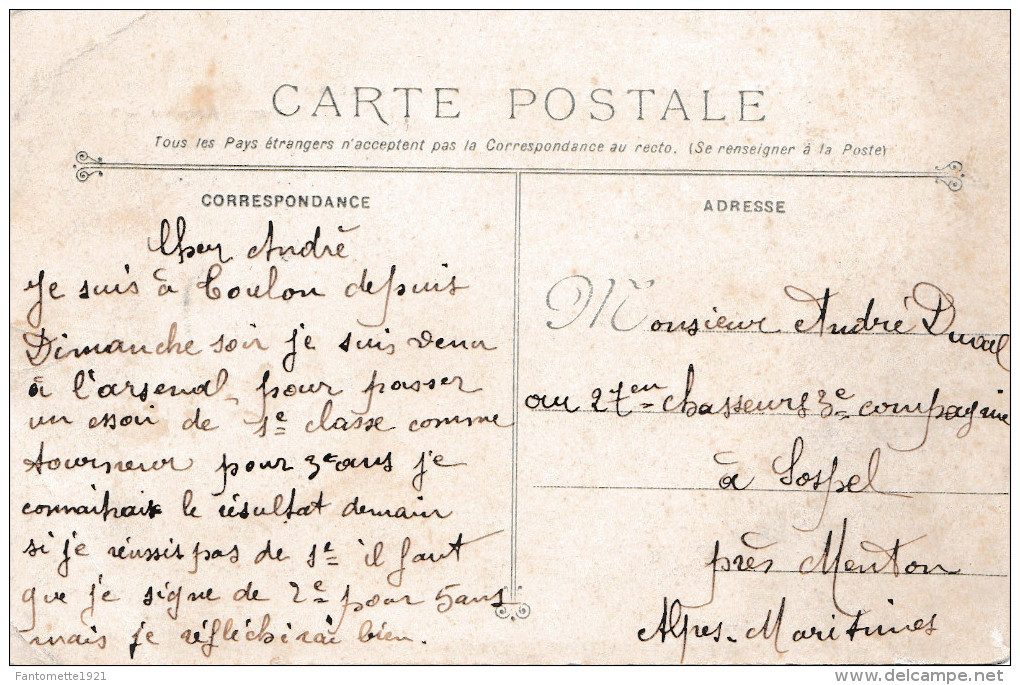 CARTE POSTALE
Tous les Pays étrangers n'acceptent pas la Correspondance au recto. (Se renseigner à la Poste)
CORRESPONDANCE
Cher André
Je suis à Toulon depuis
Dimanche soir je suis venu
à l'arsenal pour passer
un essai de 1e classe comme
tourneur pour 3e ans je
connaitrais le résultat demain
si je réussit pas de 1e il faut
que je signe de 2e pour 5 ans
mais je réfléchirai bien.
ADRESSE
Monsieur André Duval
au 27en chasseurs 3e compagnie
à Sospel
près Menton
Alpes-Maritimes
Fantomette1921
delcampe.net